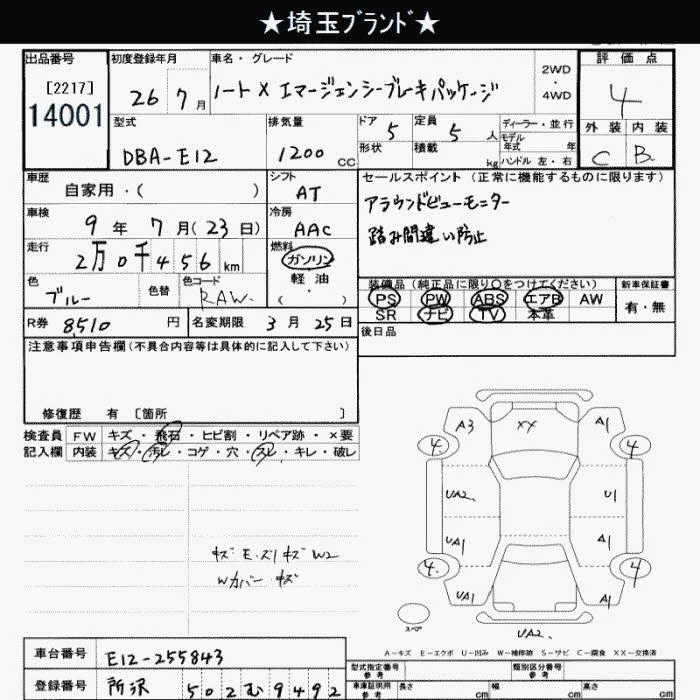 ★埼玉ブランド★
出品番号
[2217]
14001
初度登録年月
26年 7月
車名・グレード
ノート X エマージェンシーブレーキパッケージ
2WD
・
4WD
評価点
4
外装 内装
C B
型式
DBA-E12
排気量
1200 cc
ドア 5
定員 5 人
形状
積載 kg
ディーラー・並行
モデル年式 年
ハンドル 左・右
車歴
自家用・( )
シフト
AT
車検
9年 7月(23日)
冷房
AAC
走行
2万0千456km
燃料
ガソリン
軽油
( )
色
ブルー
色替
色コード
RAW.
R券 8510 円
名変期限 3月25日
セールスポイント (正常に機能するものに限ります)
アラウンドビューモニター
踏み間違い防止
装備品(純正品に限り○をつけてください)
PS PW ABS エアB AW
SR ナビ TV 本革
新車保証書
有・無
後日品
注意事項申告欄(不具合内容等は具体的に記入して下さい)
修復歴 有 [箇所 ]
検査員記入欄
FW キズ・飛石・ヒビ割・リペア跡・×要
内装 キズ・汚レ・コゲ・穴・スレ・キレ・破レ
W2
Wカバー キズ
A3 XX A1
4 4
UA2 U1
UA1 A1
4 4
UA1 A1
スペア
UA2
A-キズ E-エクボ U-凹み W-補修跡 S-サビ C-腐食 XX-交換済
車台番号
E12-255843
登録番号
所沢 502む9492
型式指定番号 参考
類別区分番号 参考
車庫証明用 参考
長さ cm
幅 cm
高さ cm